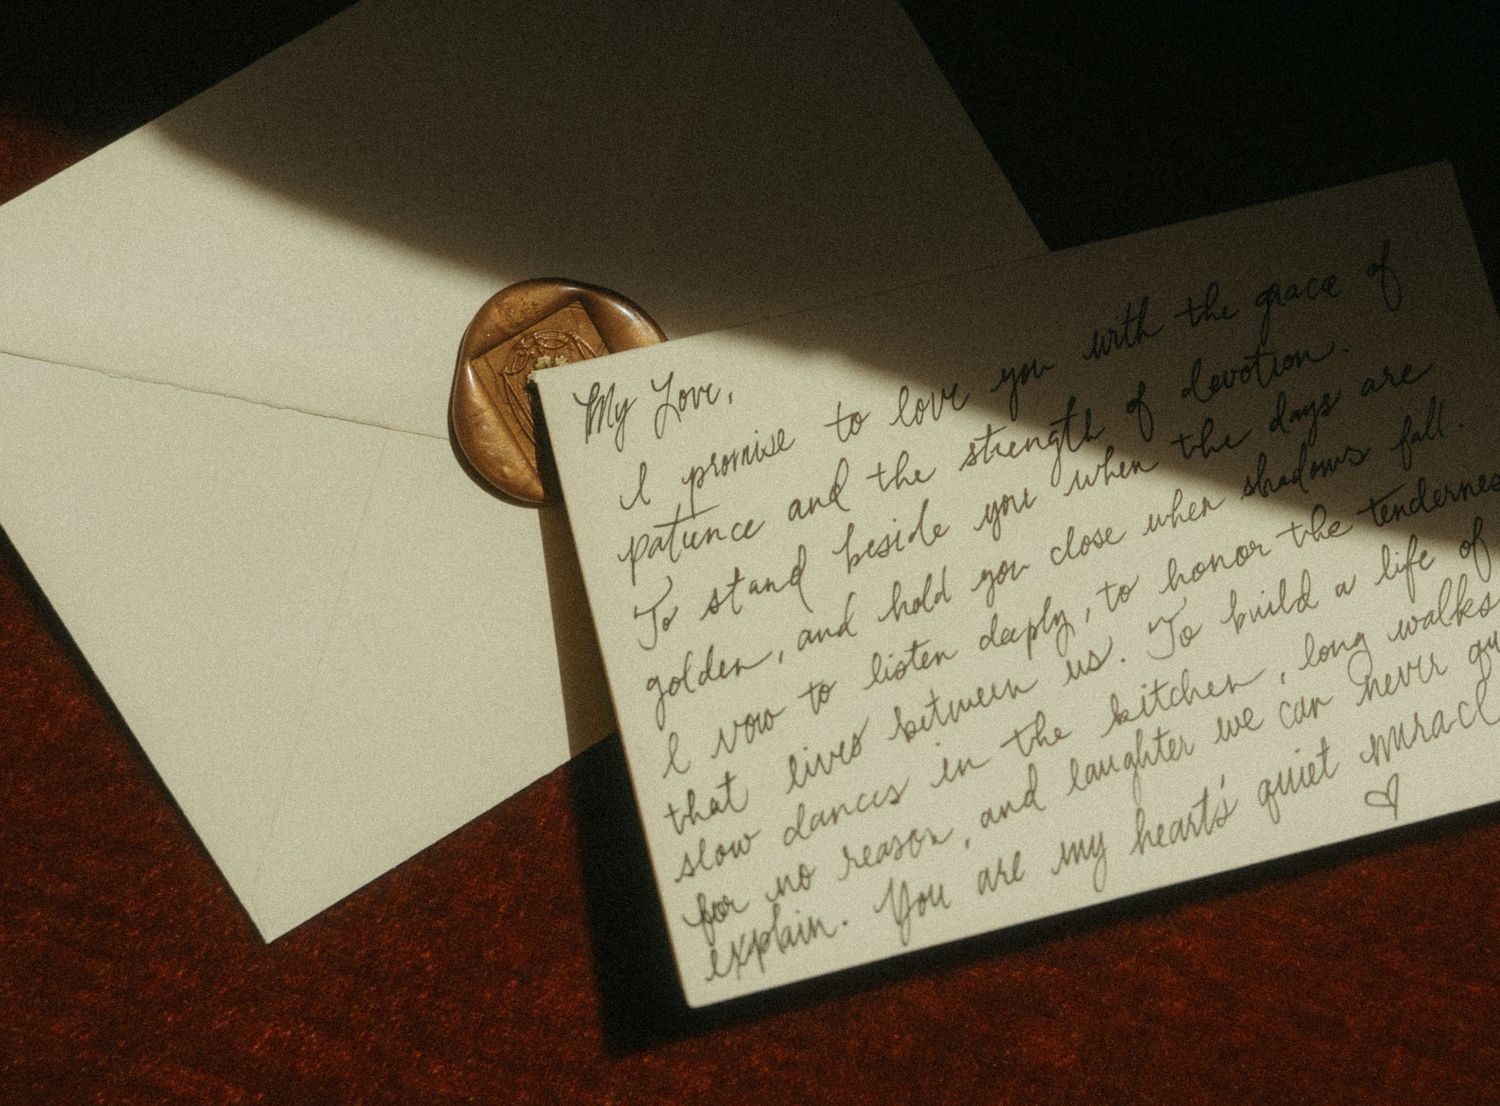 My Love,
I promise to love you with the grace of
patience and the strength of devotion.
To stand beside you when the days are
golden, and hold you close when shadows fall.
I vow to listen deeply, to honor the tendernes
that lives between us. To build a life of
slow dances in the kitchen, long walks
for no reason, and laughter we can never qu
explain. You are my heart's quiet miracl